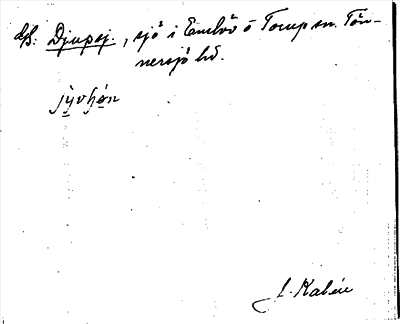 Djupsj., sjö i Enslöv o Torup sn. Tön-
nersjö hd.
jỳvhó̤n
J. Kalén